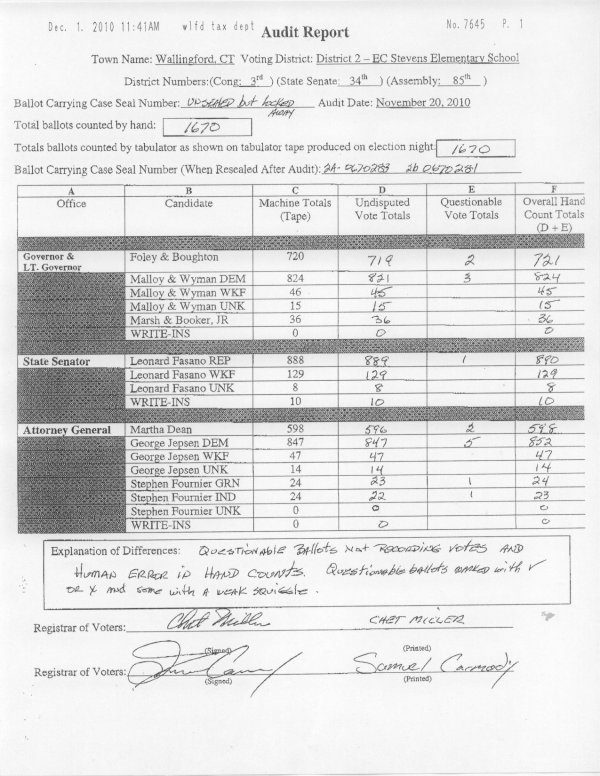 Dec. 1. 2010 11:41AM wlfd tax dept No. 7645 P. 1
Audit Report
Town Name: Wallingford, CT Voting District: District 2 – EC Stevens Elementary School
District Numbers:(Cong: 3rd ) (State Senate: 34th ) (Assembly: 85th )
Ballot Carrying Case Seal Number: UNSEALED but locked AWAY Audit Date: November 20, 2010
Total ballots counted by hand: 1670
Totals ballots counted by tabulator as shown on tabulator tape produced on election night: 1670
Ballot Carrying Case Seal Number (When Resealed After Audit): 2A- 0670283 2b 0670281
A B C D E F
Office Candidate Machine Totals (Tape) Undisputed Vote Totals Questionable Vote Totals Overall Hand Count Totals (D + E)
Governor & LT. Governor Foley & Boughton 720 719 2 721
Malloy & Wyman DEM 824 821 3 824
Malloy & Wyman WKF 46 45 45
Malloy & Wyman UNK 15 15 15
Marsh & Booker, JR 36 36 36
WRITE-INS 0 0 0
State Senator Leonard Fasano REP 888 889 1 890
Leonard Fasano WKF 129 129 129
Leonard Fasano UNK 8 8 8
WRITE-INS 10 10 10
Attorney General Martha Dean 598 596 2 598
George Jepsen DEM 847 847 5 852
George Jepsen WKF 47 47 47
George Jepsen UNK 14 14 14
Stephen Fournier GRN 24 23 1 24
Stephen Fournier IND 24 22 1 23
Stephen Fournier UNK 0 0 0
WRITE-INS 0 0 0
Explanation of Differences: QUESTIONABLE BALLOTS Not RECORDING VOTES AND
HUMAN ERROR IN HAND COUNTS. Questionable ballots marked with ✓
OR X and some with a WEAK SQUIGGLE.
Registrar of Voters: Chet Miller CHET MILLER
(Signed) (Printed)
Registrar of Voters: Samuel Carmody
(Signed) (Printed)